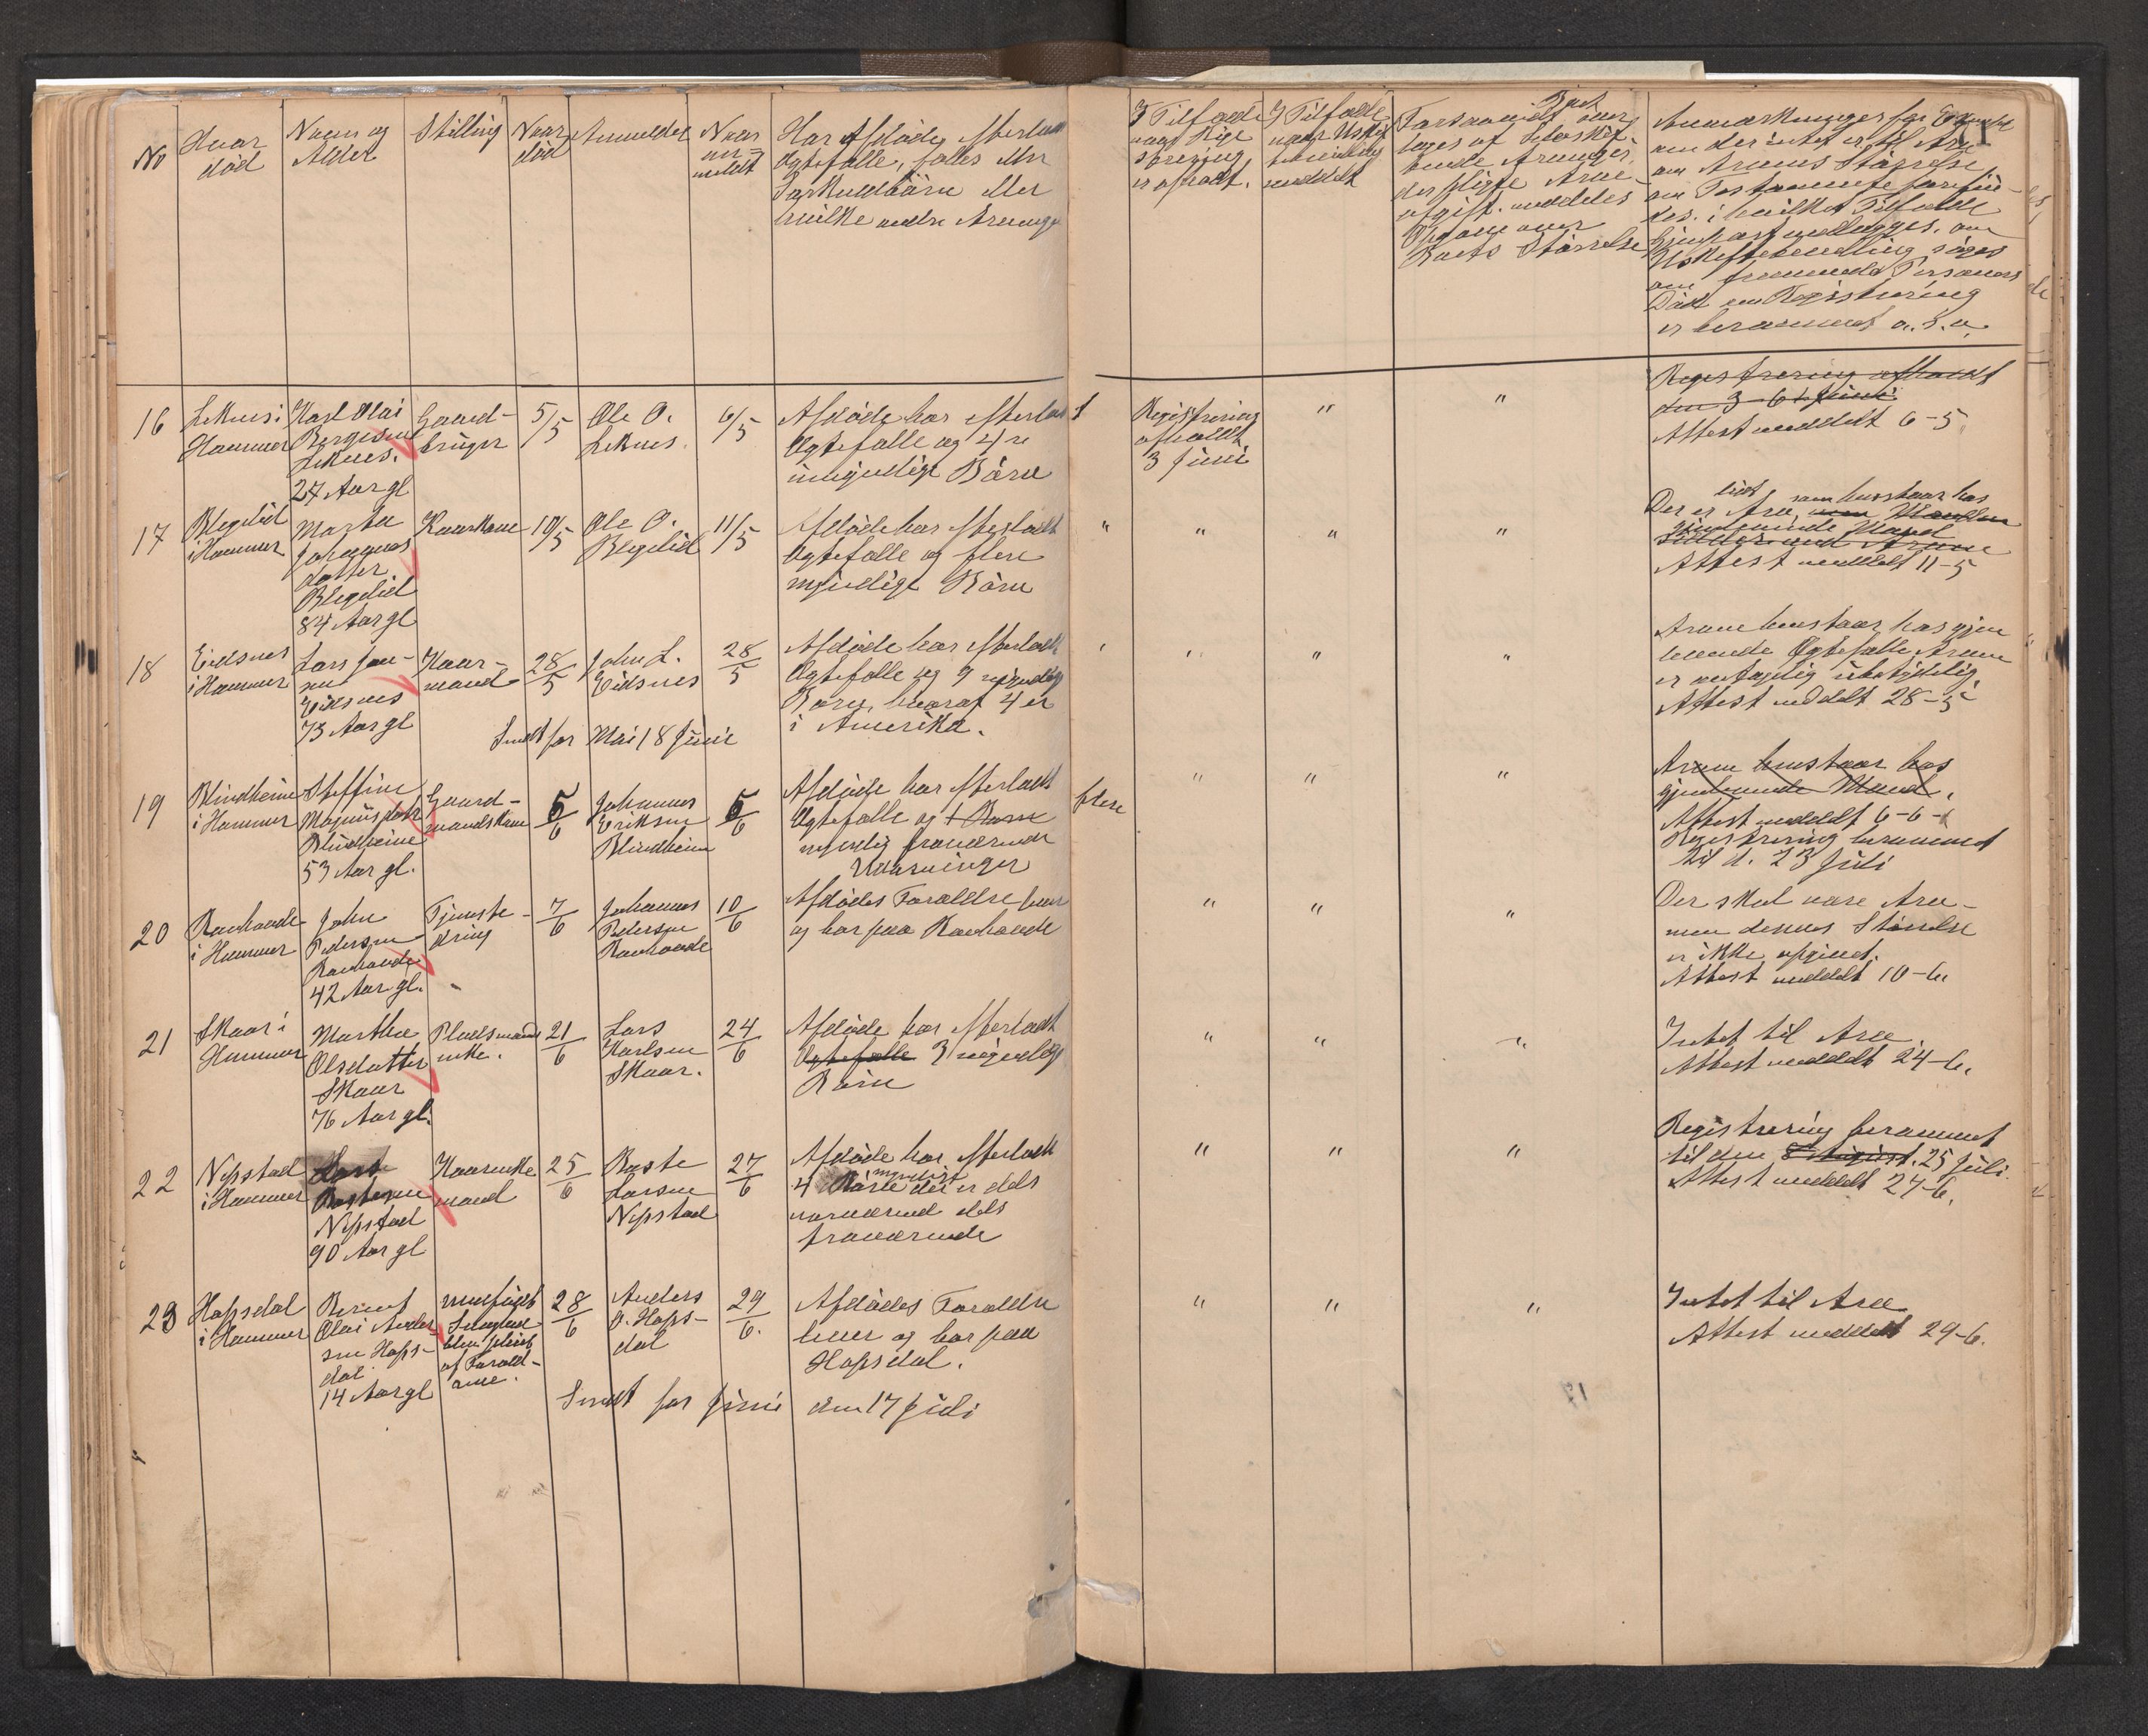 No
Hvor
död
Navn og
Alder
Stilling
Naar
död
Anmelder
Naar
an-
meldt
Har Afdöde efterladt
Ægtefælle, fælles eller
Særkuldbörn eller
hvilke andre Arvinger
I Tilfælde
naar Regi
strering
er afholdt.
I Tilfælde
naar Uskif
tebevilling
meddelt
Forsaavidt Boet over
tages af selvskif
tende Arvinger,
der pligte Arve
afgift. meddeles
Opgave over
Boets Störrelse
Anmærkninger for Exempel
om der intet er til Arv
om Arvens Störrelse
om Testamente forefin-
des. i hvilket Tilfælde
Gjenpart vedlægges, om
Uskiftebevilling söges
om fremmede Personers
Död om Registrering
er berammet o. s. v.
16
Leknes i
Hammer
Karl Olai
Bergesen
Leknes.
27 Aar gl
Gaard-
bruger
5/5
Ole O.
Leknes.
6/5
Afdöde har efterladt
Ægtefælle og 4 re
umyndige Börn
Registrering
afholdt
3 Juni
"
"
Registrering afholdt
den 3 Juni
Attest meddelt 6-5
17
Blegelid
i Hammer
Marthe
Johannes
datter
Blegelid
84 Aar gl
Kaarkone
10/5
Ole O.
Blegelid
11/5
Afdöde har efterladt
Ægtefælle og flere
myndige Börn
"
"
"
"
Der er lidt Arv, som henstaar hos
gjenlevende Mand
Attest meddelt 11-5
18
Eidsnes
i Hammer
Lars Jon-
sen
Eidsnes
73 Aar gl
Kaar-
mand
28/5
John L.
Eidsnes
28/5
Afdöde har efterladt
Ægtefælle og 9 myndige
Börn, hvoraf 4 er
i Amerika.
"
"
"
Arven henstaar hos gjen
levende Ægtefælle Arven
er antagelig ubetydelig.
Attest meddelt 28-5
Sendt for Mai 18 Juni
19
Blindheim
i Hammer
Steffine
Magnusdatr
Blindheim
53 Aar gl.
Gaard-
mandskone
5/6
Johannes
Eriksen
Blindheim
6/6
Afdöde har efterladt
Ægtefælle og + Börn
myndig fraværende
Udarvinger
flere
"
"
"
Arven henstaar hos
gjenlevende Mand.
Attest meddelt 6-6
Registrering berammet
til d. 23 Juli
20
i Hammer
John
Pedersen
42 Aar gl.
Tjeneste-
dreng
7/6
Johannes
Pedersen
10/6
Afdödes Forældre lever
"
"
"
Der skal være Arv-
men dennes Störrelse
er ikke opgivet.
Attest meddelt 10-6
21
Skaar i
Hammer
Marthe
Olsdatter
Skaar
76 Aar gl.
Pladsmands
enke.
21/6
Lars
Karlsen
Skaar.
24/6
Afdöde har efterladt
Ægtefælle 3 myndige
Börn
"
"
"
Intet til Arv.
Attest meddelt 24-6.
22
Nipstad
i Hammer
Nipstad
90 Aar gl
Kaarenke
mand
25/6
Baste
Larsen
Nipstad
27/6
Afdöde har efterladt
4 myndige Börn der er dels
nærværend dels
fraværende
"
"
"
Registrering berammet
til den 8 August. 25 Juli.
Attest meddelt 27-6.
23
Hopsdal
i Hammer
Berent
Olai Ander-
sen Hops-
dal
14 Aar gl
blev pleiet
af Foræld-
rene.
28/6
Anders
O. Hops-
dal
29/6.
Afdödes Forældre
lever og bor paa
Hopsdal.
"
"
"
Intet til Arv
Attest meddelt 29-6.
Sendt for Juni den 17 Juli